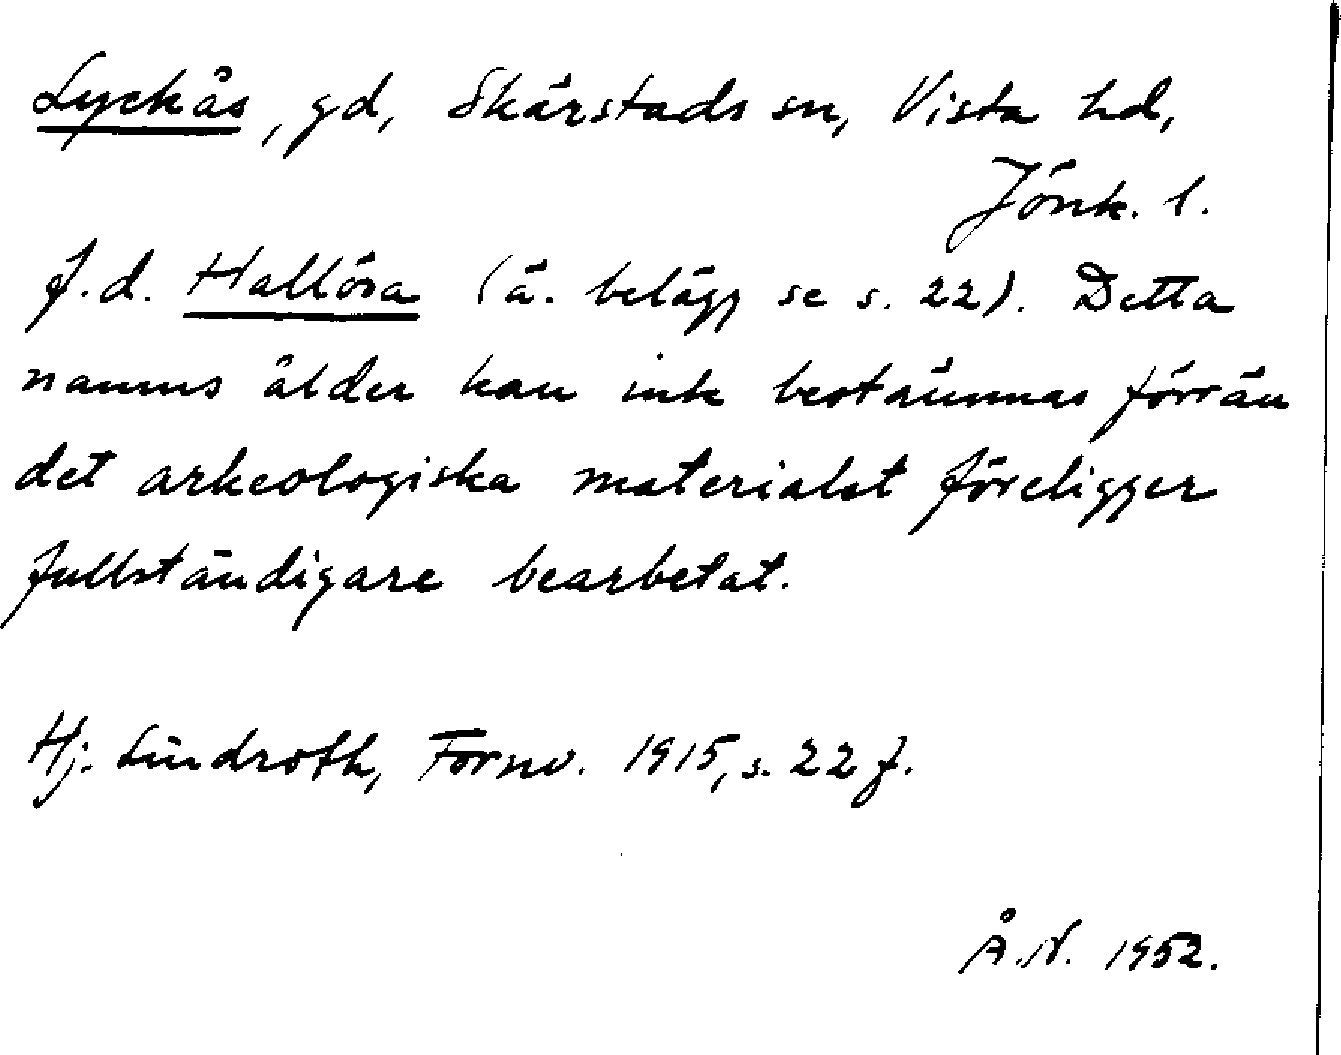 Lyckås, gd, Skärstads sn, Vista hd,
Jönk. l.
f.d. Hallösa (ä. belägg se s. 22). Detta
namns ålder kan inte bestämmas förrän
det arkeologiska materialet föreligger
fullständigare bearbetat.
Hj. Lindroth, Fornv. 1915, s. 22 f.
Å.N. 1952.